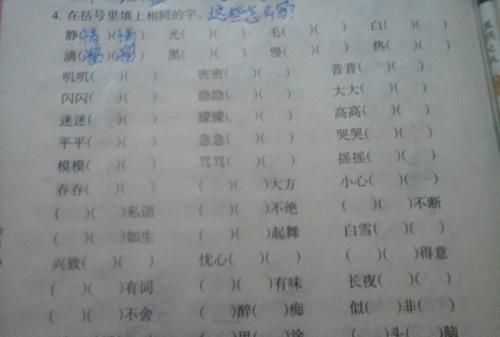 4. 在括号里填上相同的字。这些怎么写?
静(悄)(悄) 光( )( ) 毛( )( ) 白( )( )
滴(溜)(溜) 黑( )( ) 慢( )( ) 热( )( )
叽叽( )( ) 密密( )( ) 昔昔( )( )
闪闪( )( ) 隐隐( )( ) 大大( )( )
迷迷( )( ) 朦朦( )( ) 高高( )( )
平平( )( ) 急急( )( ) 哭哭( )( )
模模( )( ) 骂骂( )( ) 摇摇( )( )
吞吞( )( ) ( )( )大方 小心( )( )
( )( )私语 ( )( )不绝 ( )( )不断
( )( )如生 ( )( )起舞 白雪( )( )
兴致( )( ) 忧心( )( ) ( )( )得意
( )( )有词 ( )( )有味 长夜( )( )
( )( )不舍 ( )醉( )痴 似( )非( )
( )思( ) ( )头( )脑